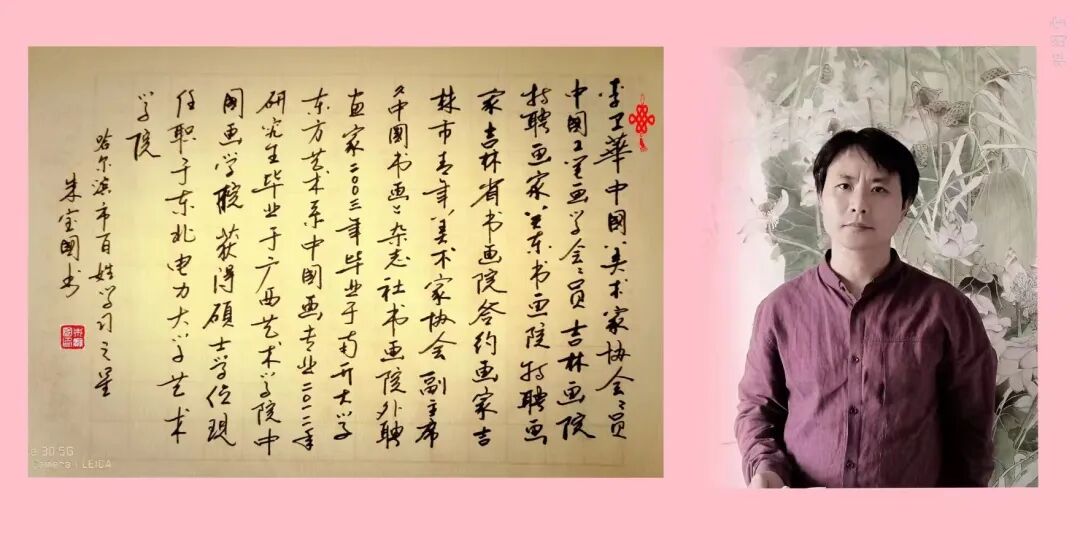 李卫華中國美术家协会〻员
中國工笔画学会〻员吉林画院
特聘画家关东书画院特聘画
家吉林省书画院签约画家吉
林市青年美术家协会副主席
《中国书画》杂志社书画院外聘
画家二〇〇三年毕业于南开大学
东方艺术系中國画专业二〇一二年
研究生毕业于广西艺术学院中
國画学院获得碩士学位現
任职于东北电力大学艺术
学院
哈尔滨市百姓学习之星
朱宝國书
30 5G
Camera | LEICA